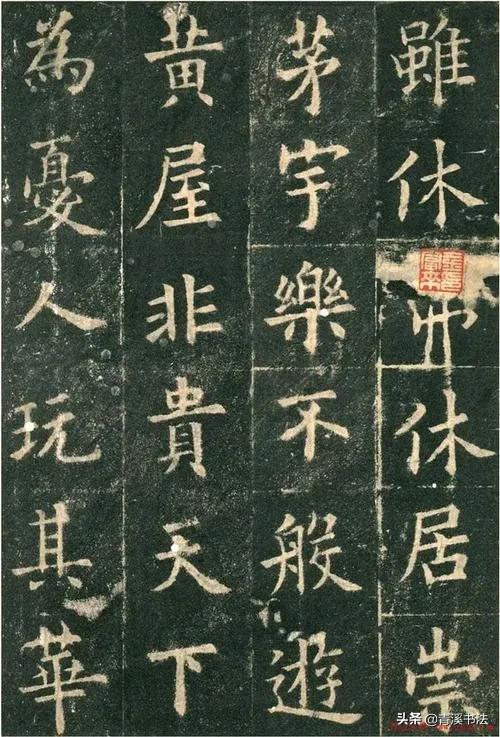 雖休休居崇
茅宇樂不般遊
黃屋非貴天下
為憂人玩其華
头条 @青溪书法